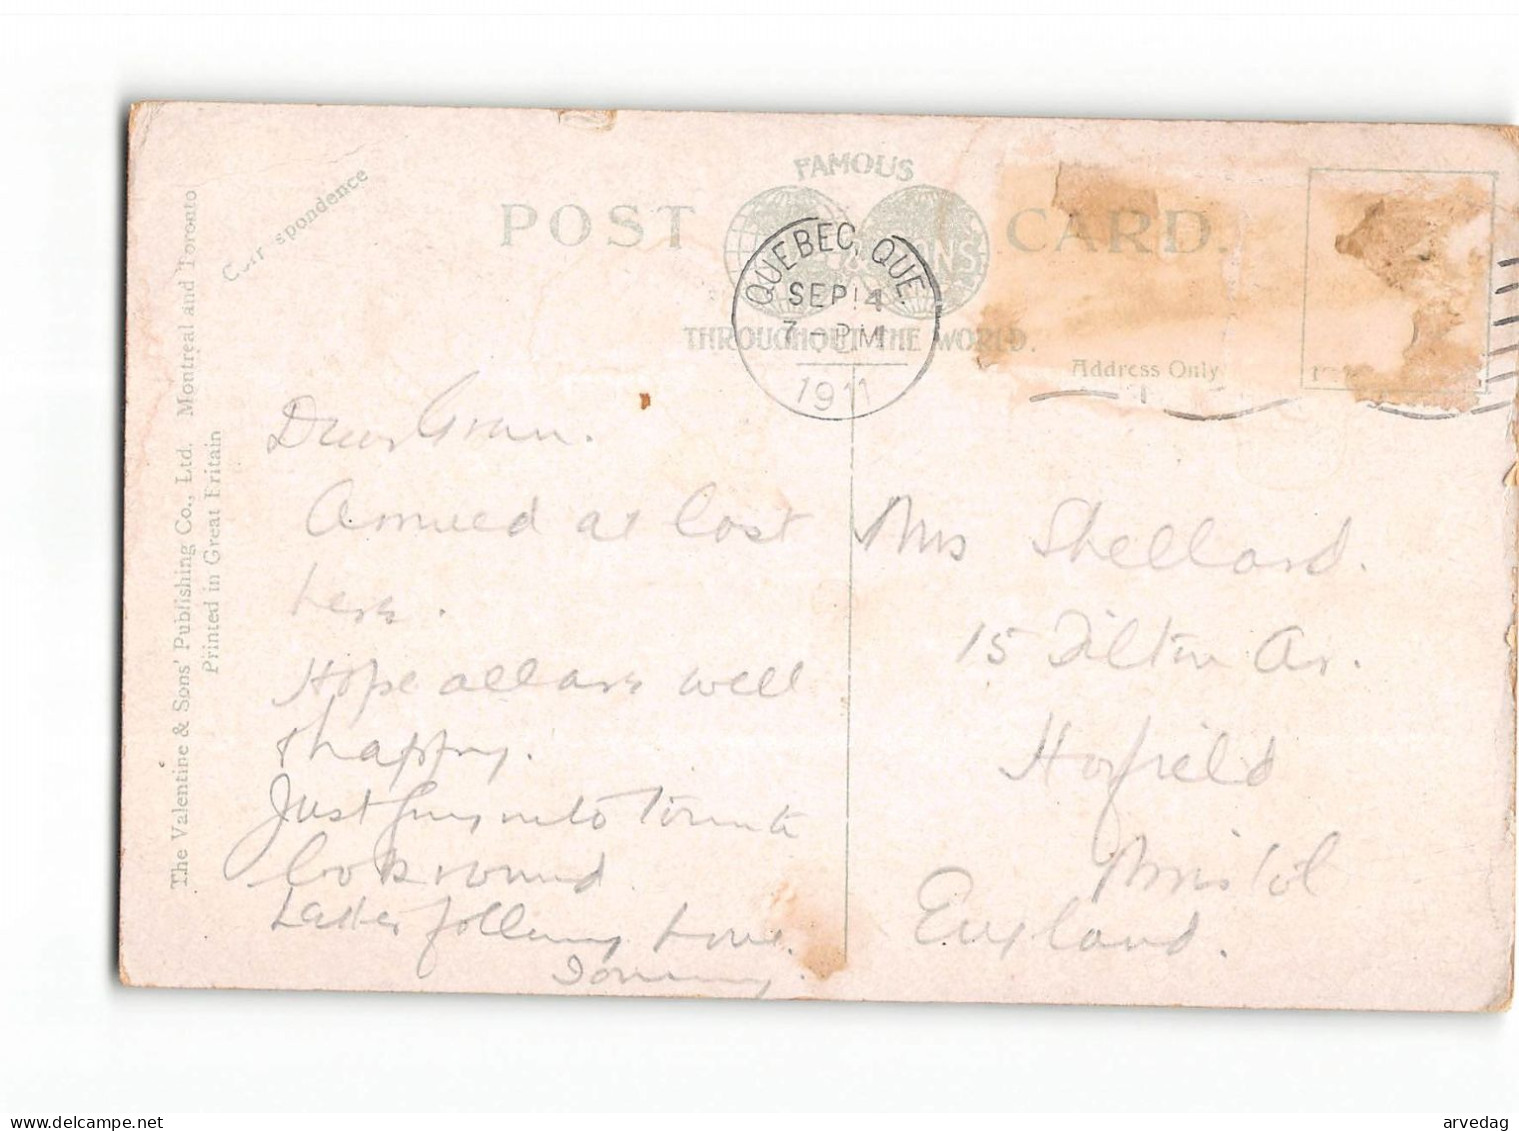 FAMOUS
POST CARD.
& SONS'
THROUGHOUT THE WORLD.
QUEBEC, QUE.
SEP 14
7 - PM
1911
Address Only
Correspondence
The Valentine & Sons' Publishing Co., Ltd. Montreal and Toronto
Printed in Great Britain
Dear Gran.
Arrived at last
here.
Hope all are well
& happy.
Just going into Toronto
look round.
Letter following
Mrs Shellard.
15 Tilton Av.
Horfield
Bristol
England.
delcampe.net
arvedag